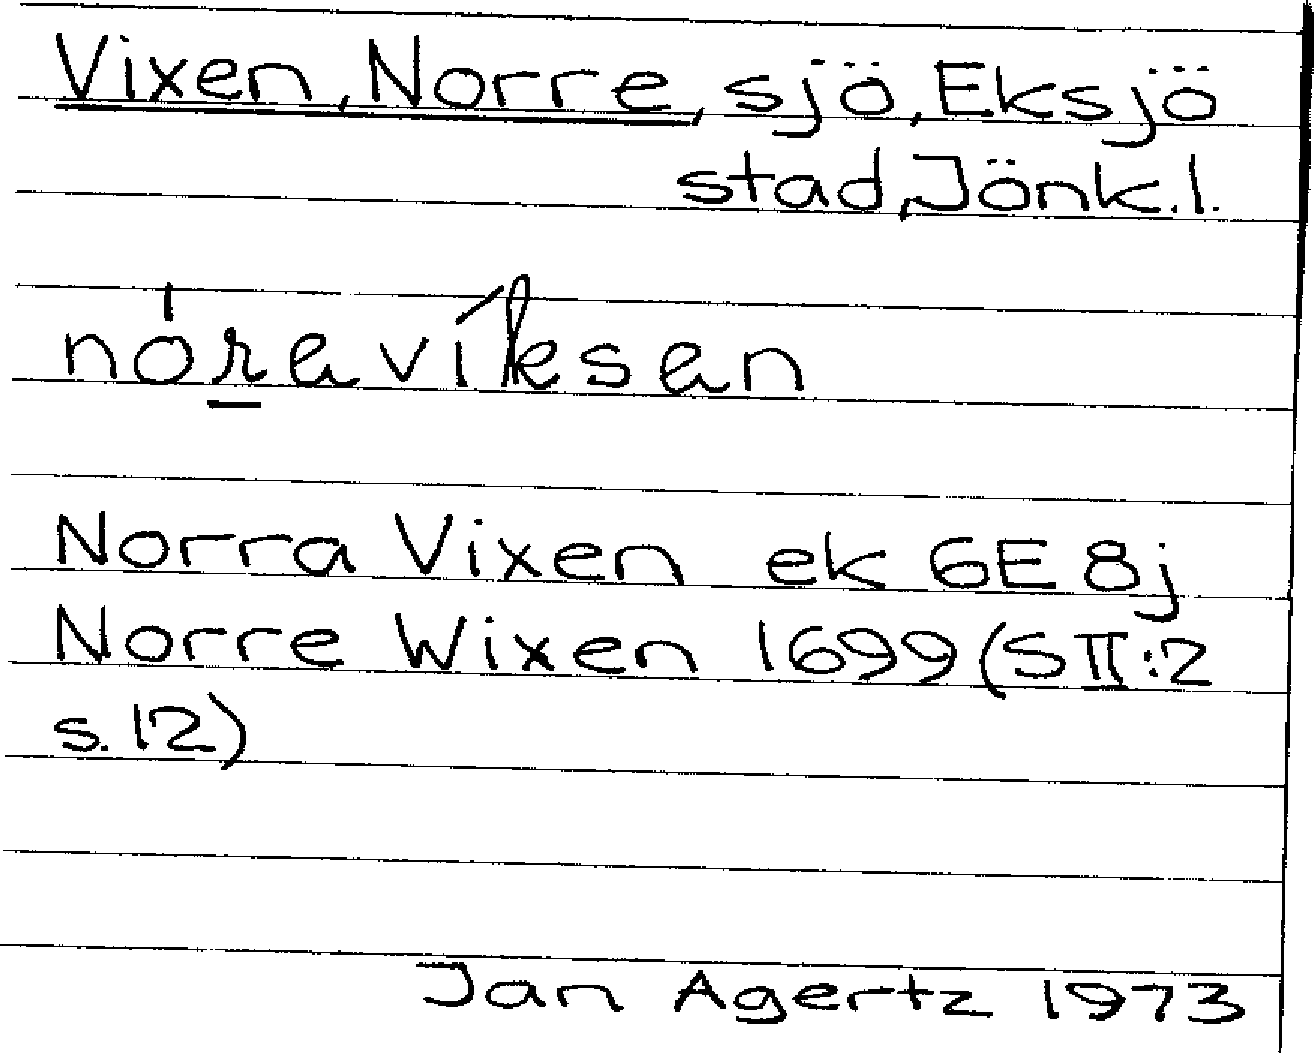 Vixen, Norre, sjö, Eksjö
stad, Jönk.l.
nòra víksan
Norra Vixen ek 6E 8j
Norre Wixen 1699 (S II:2
s. 12)
Jan Agertz 1973